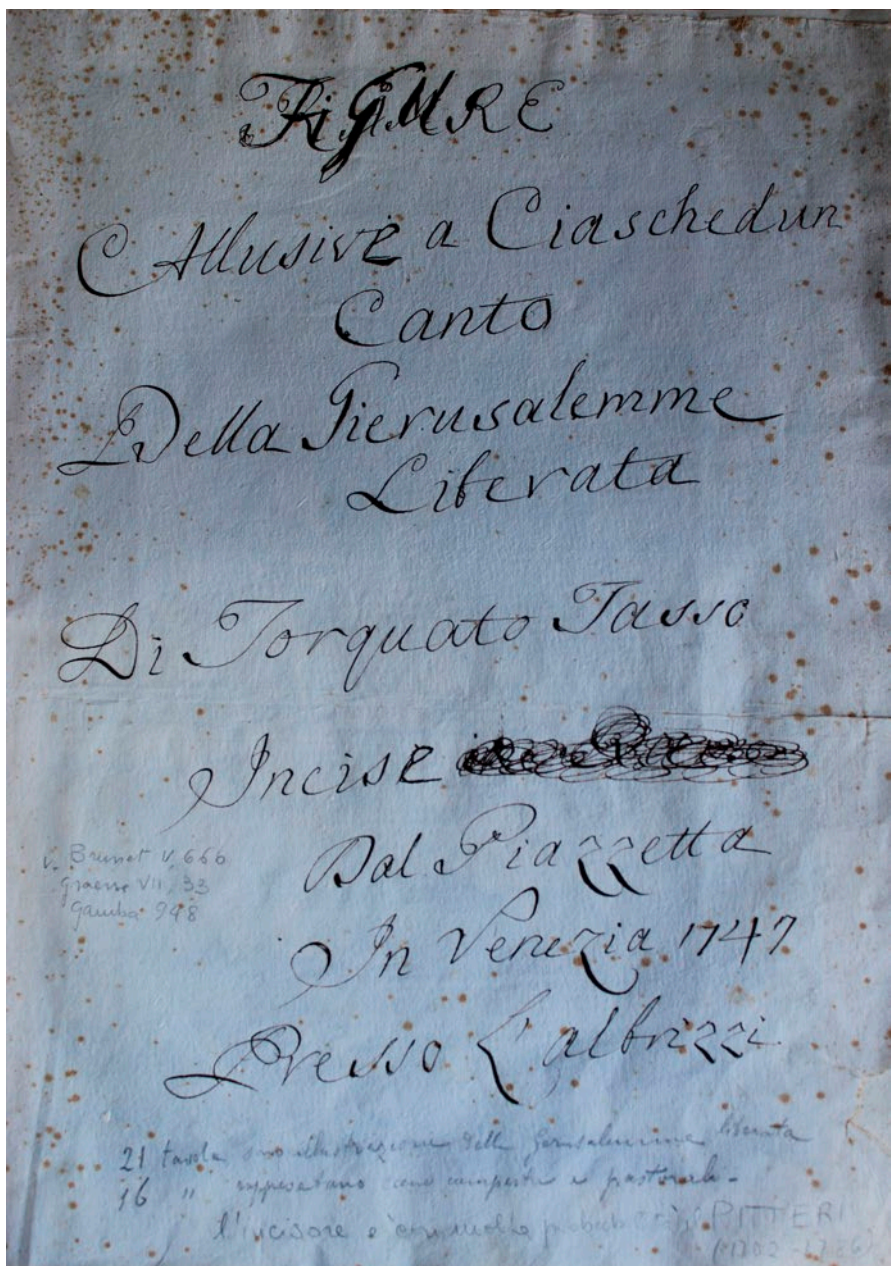 FiGURE
Allusive a Ciaschedun
Canto
Della Gierusalemme
Liberata
Di Torquato Tasso
Incise
Dal Piazzetta
v. Brunet V, 666
Graesse VII, 33
Gamba 948
In Venezia 1747
Presso L'albrizzi
21 tavole sono illustrazione della Gerusalemme liberata
16 " rappresentano scene campestri e pastorali -
l'incisore è con molta probabilità PITTERI
(1702 - 1786)